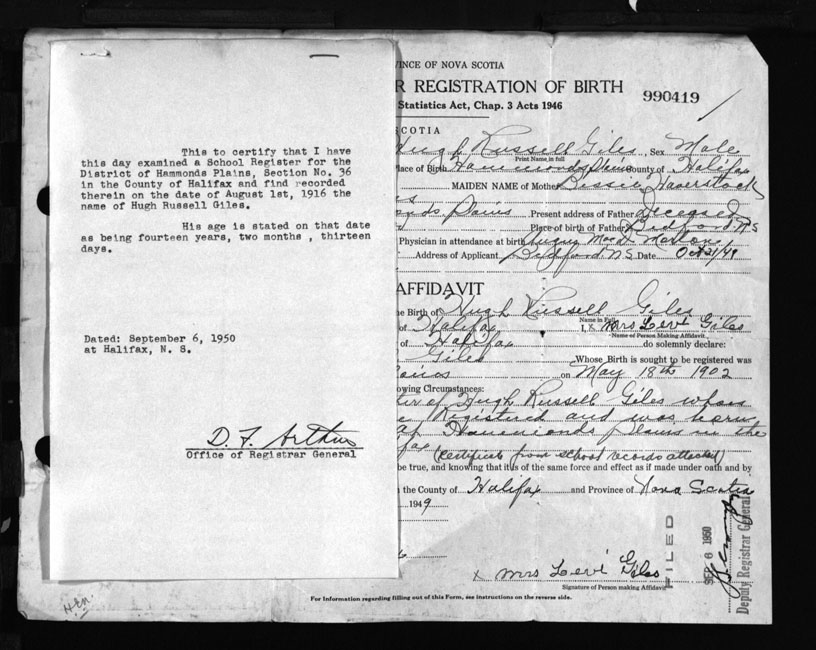 This to certify that I have
this day examined a School Register for the
District of Hammonds Plains, Section No. 36
in the County of Halifax and find recorded
therein on the date of August 1st, 1916 the
name of Hugh Russell Giles.
His age is stated on that date
as being fourteen years, two months , thirteen
days.
Dated: September 6, 1950
at Halifax, N. S.
D. F. Arthur
Office of Registrar General
VINCE OF NOVA SCOTIA
R REGISTRATION OF BIRTH
990419
Statistics Act, Chap. 3 Acts 1946
SCOTIA
Hugh Russell Giles, Sex Male
Print Name in full
lace of Birth Hammonds Plains County of Halifax
MAIDEN NAME of Mother Bessie Haverstock
onds Plains Present address of Father Deceased
Place of birth of Father Bedford N S
Physician in attendance at birth
Address of Applicant Bedford N S Date Oct 31/49
AFFIDAVIT
he Birth of Hugh Russell Giles
Name in Full
of Halifax I, x Mrs Levi Giles
Name of Person Making Affidavit
of Halifax do solemnly declare:
Giles Whose Birth is sought to be registered was
lains on May 18th 1902
owing Circumstances:
ter of Hugh Russell Giles whose
Registered and was born
at Hammonds Plains in the
fax (certificate from school records attached)
be true, and knowing that it is of the same force and effect as if made under oath and by
n the County of Halifax and Province of Nova Scotia
1949
FILED
SEP 6 1950
Deputy Registrar General
x Mrs Levi Giles
Signature of Person making Affidavit
For Information regarding filling out of this Form, see instructions on the reverse side.